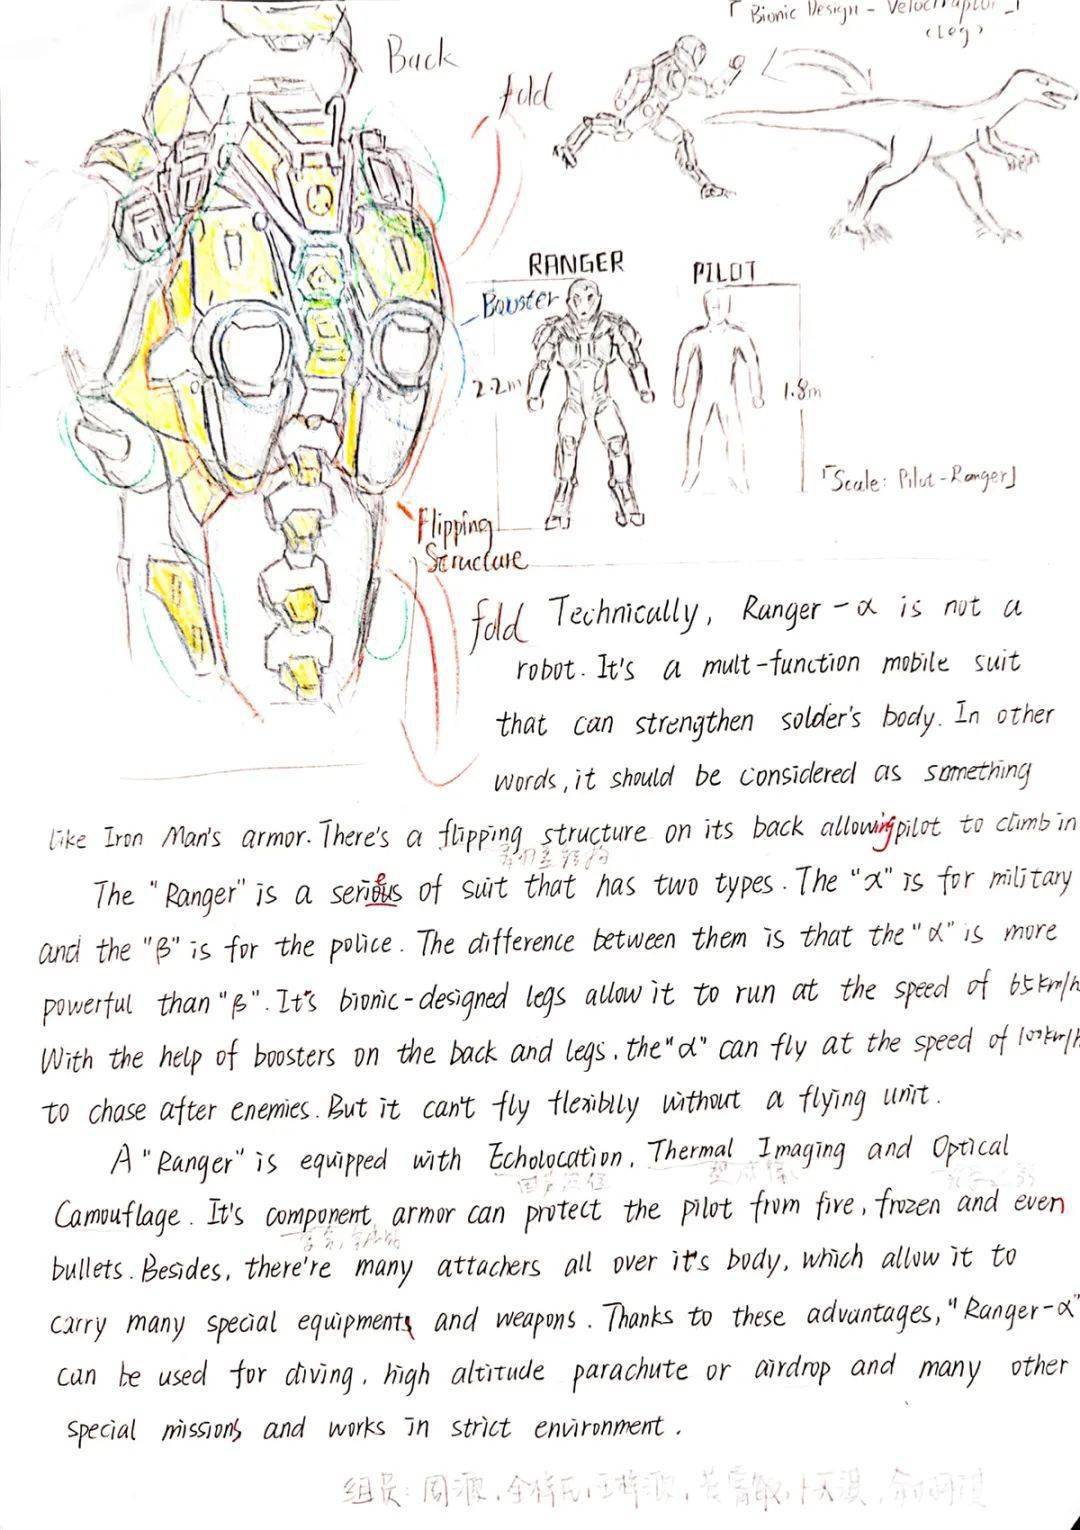 「Bionic Design - Velociraptor」
(Leg)
Back
fold
RANGER
PILOT
Booster
2.2m
1.8m
「Scale: Pilot-Ranger」
Flipping
Structure
fold
Technically, Ranger-α is not a
robot. It's a mult-function mobile suit
that can strengthen solder's body. In other
words, it should be considered as something
like Iron Man's armor. There's a flipping structure on its back allowing pilot to climb in
The "Ranger" is a series of suit that has two types. The "α" is for military
and the "β" is for the police. The difference between them is that the "α" is more
powerful than "β". It's bionic-designed legs allow it to run at the speed of 65km/h
With the help of boosters on the back and legs, the "α" can fly at the speed of 100km/h
to chase after enemies. But it can't fly flexiblly without a flying unit.
A "Ranger" is equipped with Echolocation, Thermal Imaging and Optical
回声定位
Camouflage. It's component armor can protect the pilot from fire, frozen and even
bullets. Besides, there're many attachers all over it's body, which allow it to
carry many special equipments and weapons. Thanks to these advantages, "Ranger-α"
can be used for diving, high altitude parachute or airdrop and many other
special missions and works in strict environment.
组员: